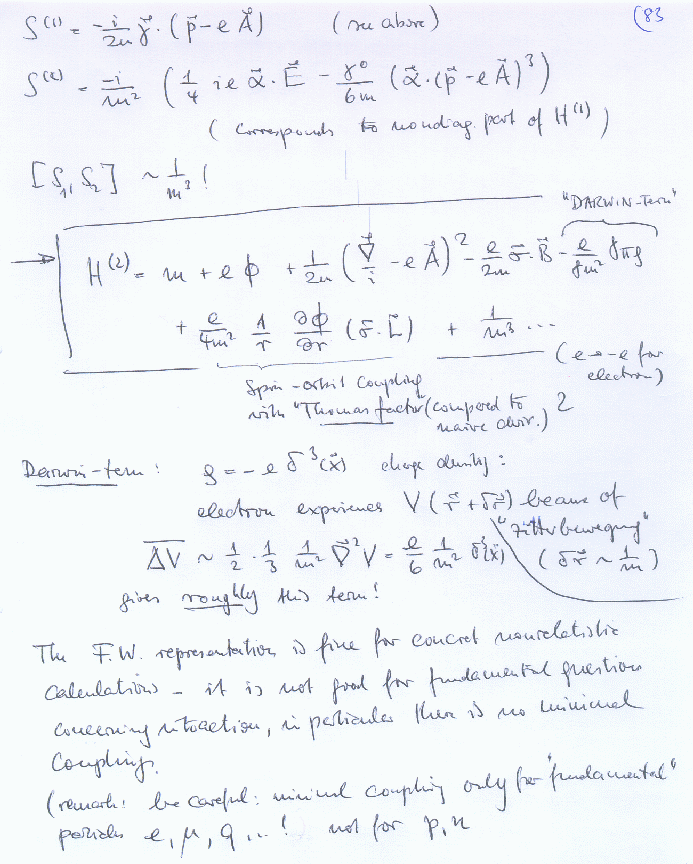 S⁽¹⁾ = -i/2m γ⃗ · (p⃗ - e A⃗) (see above) (83
S⁽²⁾ = -i/m² (1/4 ie α⃗ · E⃗ - γ⁰/6m (α⃗ · (p⃗ - e A⃗)³)
(corresponds to nondiag. part of H⁽¹⁾)
[S₁, S₂] ~ 1/m³ !
"DARWIN-Term"
→ H⁽²⁾ = m + e ϕ + 1/2m (∇⃗/i - e A⃗)² - e/2m σ⃗ · B⃗ - e/8m² 4πρ
+ e/4m² 1/r ∂ϕ/∂r (σ⃗ · L⃗) + 1/m³ ...
(e → -e for
electron)
Spin-orbit coupling
with "Thomas factor (compared to
naive deriv.) 2
Darwin-term: ρ = -e δ³(x⃗) charge density:
electron experiences V(r⃗ + δr⃗) because of
"Zitterbewegung"
ΔV ~ 1/2 · 1/3 1/m² ∇⃗² V = e/6 1/m² δ³(x⃗) (δr ~ 1/m)
gives roughly this term!
The F.W. representation is fine for concret nonrelatistic
calculations - it is not good for fundamental question
concerning interaction, in particular there is no minimal
coupling.
(remark: be careful: minimal coupling only for "fundamental"
particles e, μ, q ... ! not for p, n